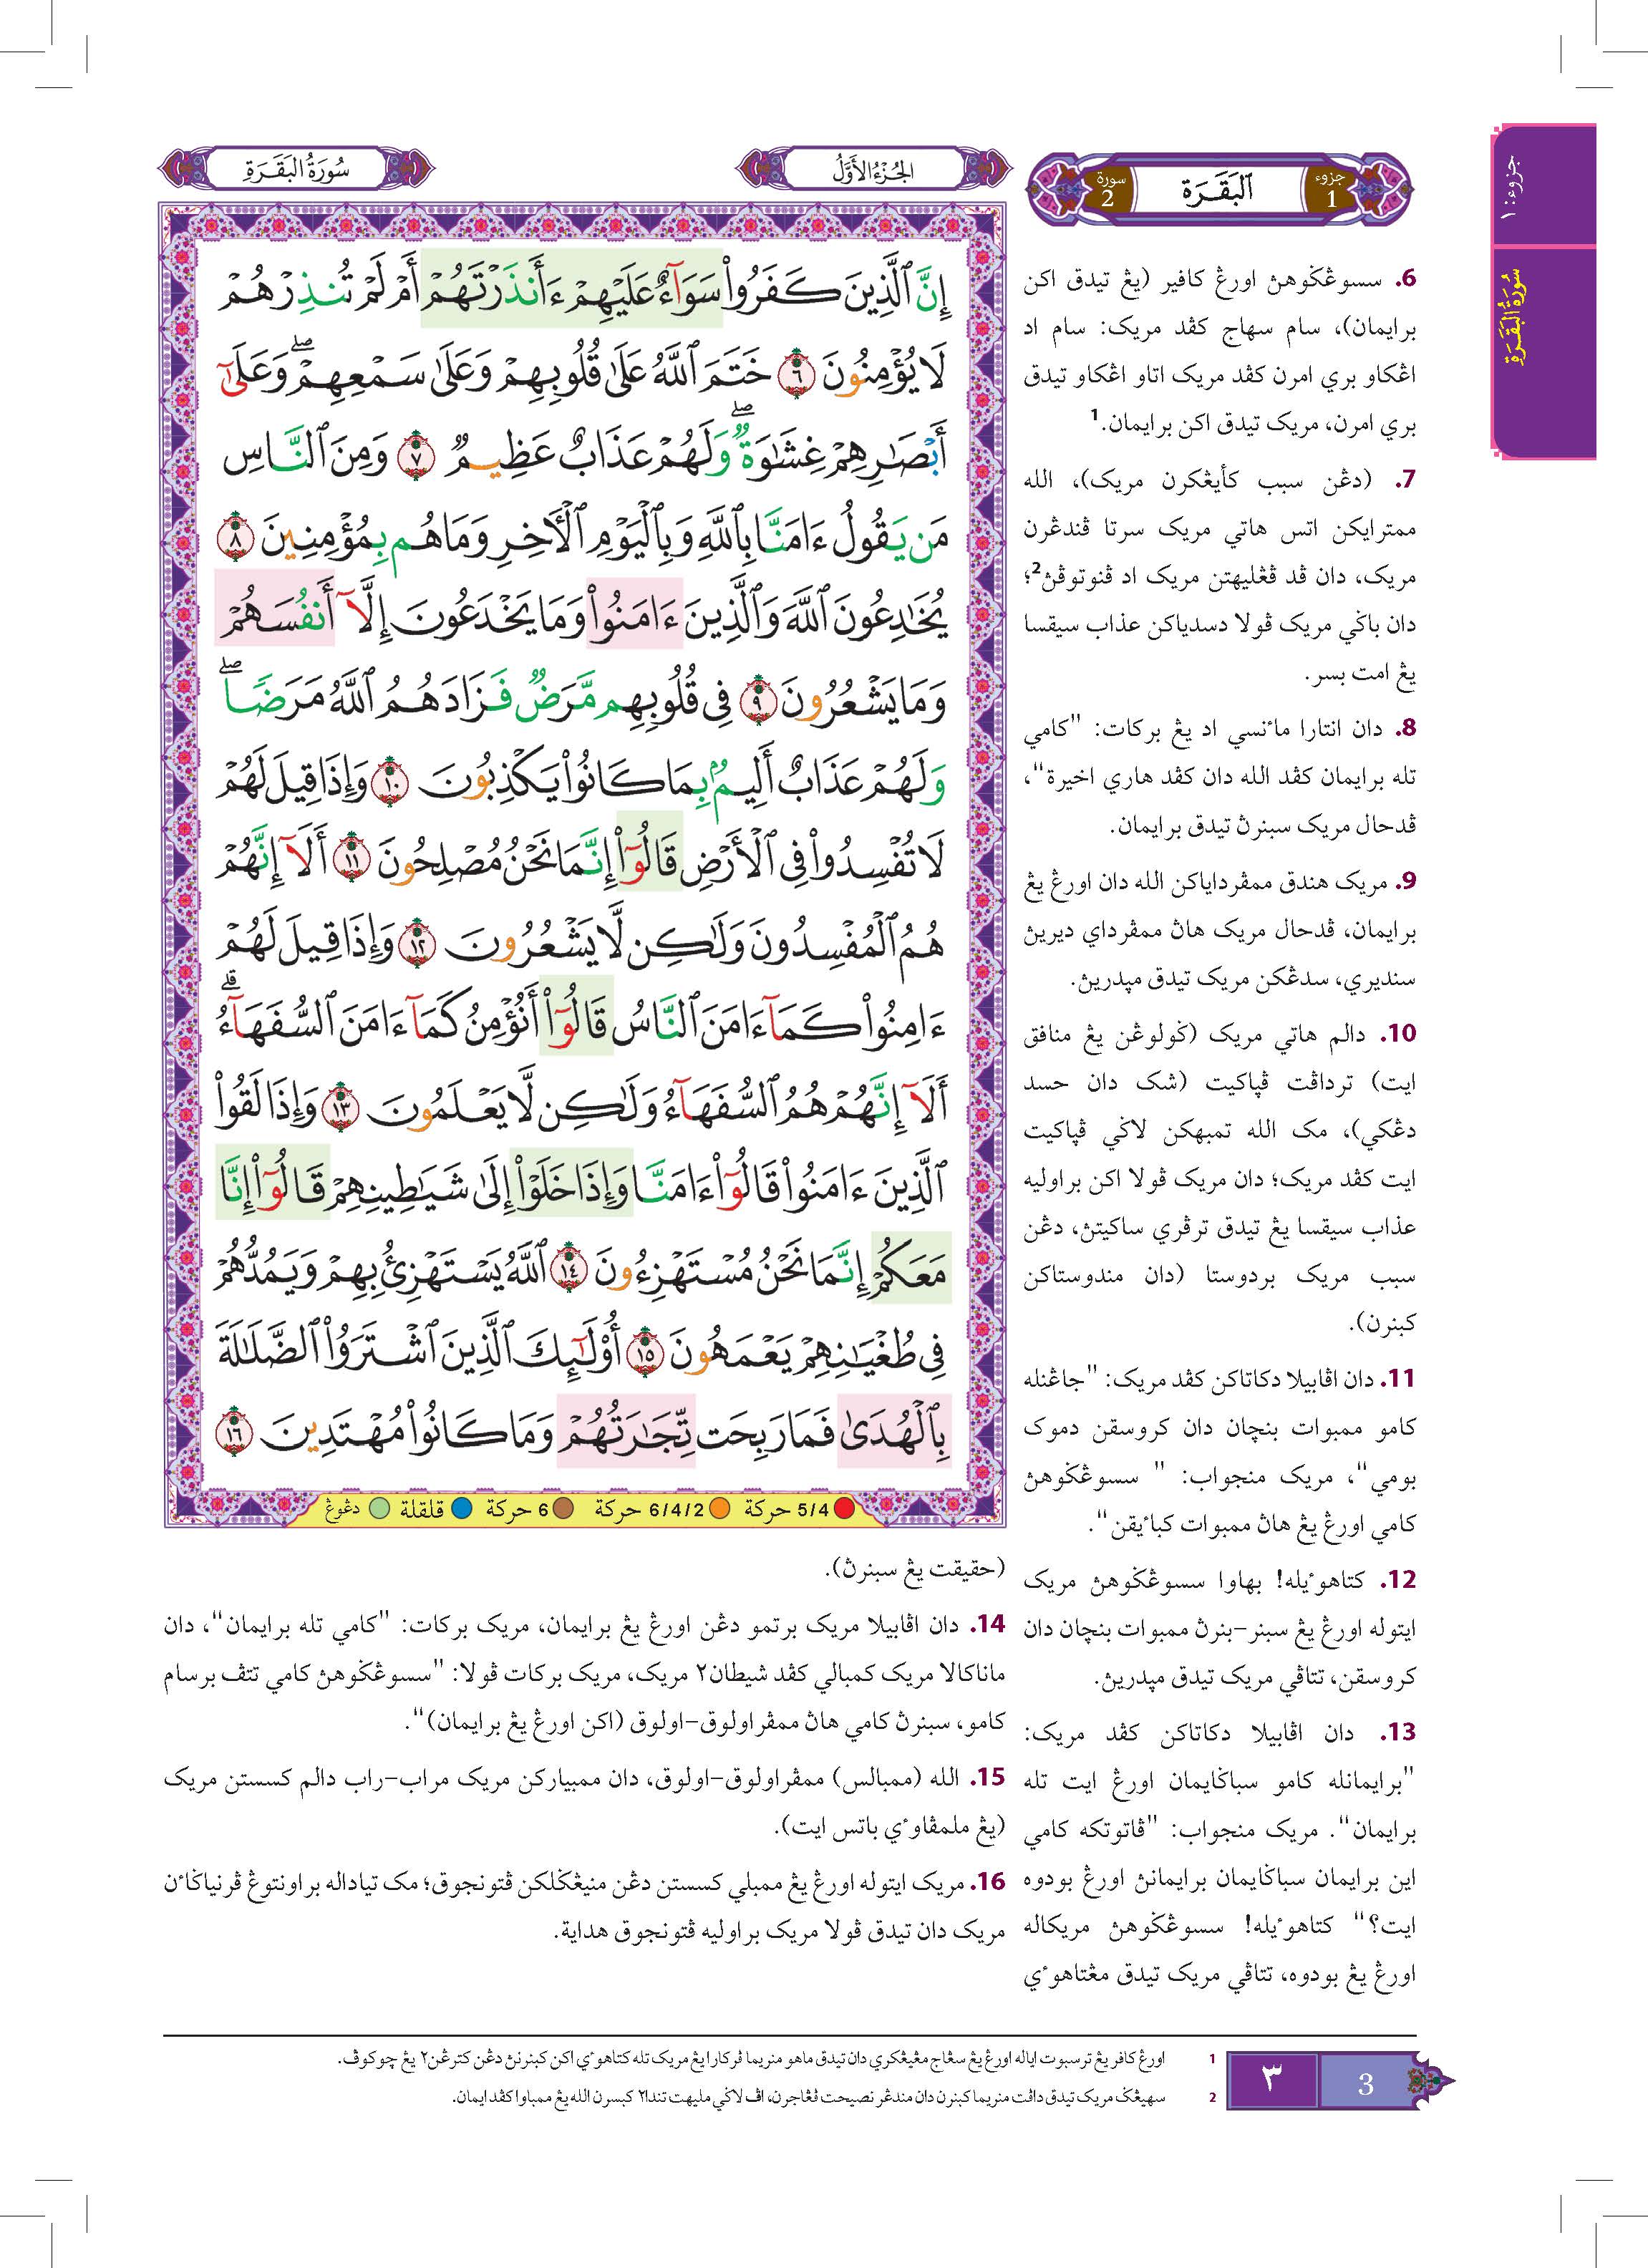 سُورَةُ البَقَرَةِ
الجُزْءُ الأَوَّلُ
سورة 2
اَلْبَقَرَة
جزوء 1
جزوء: ١
سُورَةُ البَقَرَةِ
إِنَّ ٱلَّذِينَ كَفَرُوا۟ سَوَآءٌ عَلَيْهِمْ ءَأَنذَرْتَهُمْ أَمْ لَمْ تُنذِرْهُمْ
لَا يُؤْمِنُونَ ٦ خَتَمَ ٱللَّهُ عَلَىٰ قُلُوبِهِمْ وَعَلَىٰ سَمْعِهِمْ ۖ وَعَلَىٰٓ
أَبْصَٰرِهِمْ غِشَٰوَةٌ ۖ وَلَهُمْ عَذَابٌ عَظِيمٌ ٧ وَمِنَ ٱلنَّاسِ
مَن يَقُولُ ءَامَنَّا بِٱللَّهِ وَبِٱلْيَوْمِ ٱلْءَاخِرِ وَمَا هُم بِمُؤْمِنِينَ ٨
يُخَٰدِعُونَ ٱللَّهَ وَٱلَّذِينَ ءَامَنُوا۟ وَمَا يَخْدَعُونَ إِلَّآ أَنفُسَهُمْ
وَمَا يَشْعُرُونَ ٩ فِى قُلُوبِهِم مَّرَضٌ فَزَادَهُمُ ٱللَّهُ مَرَضًا ۖ
وَلَهُمْ عَذَابٌ أَلِيمٌۢ بِمَا كَانُوا۟ يَكْذِبُونَ ١٠ وَإِذَا قِيلَ لَهُمْ
لَا تُفْسِدُوا۟ فِى ٱلْأَرْضِ قَالُوٓا۟ إِنَّمَا نَحْنُ مُصْلِحُونَ ١١ أَلَآ إِنَّهُمْ
هُمُ ٱلْمُفْسِدُونَ وَلَٰكِن لَّا يَشْعُرُونَ ١٢ وَإِذَا قِيلَ لَهُمْ
ءَامِنُوا۟ كَمَآ ءَامَنَ ٱلنَّاسُ قَالُوٓا۟ أَنُؤْمِنُ كَمَآ ءَامَنَ ٱلسُّفَهَآءُ ۗ
أَلَآ إِنَّهُمْ هُمُ ٱلسُّفَهَآءُ وَلَٰكِن لَّا يَعْلَمُونَ ١٣ وَإِذَا لَقُوا۟
ٱلَّذِينَ ءَامَنُوا۟ قَالُوٓا۟ ءَامَنَّا وَإِذَا خَلَوْا۟ إِلَىٰ شَيَٰطِينِهِمْ قَالُوٓا۟ إِنَّا
مَعَكُمْ إِنَّمَا نَحْنُ مُسْتَهْزِءُونَ ١٤ ٱللَّهُ يَسْتَهْزِئُ بِهِمْ وَيَمُدُّهُمْ
فِى طُغْيَٰنِهِمْ يَعْمَهُونَ ١٥ أُو۟لَٰٓئِكَ ٱلَّذِينَ ٱشْتَرَوُا۟ ٱلضَّلَٰلَةَ
بِٱلْهُدَىٰ فَمَا رَبِحَت تِّجَٰرَتُهُمْ وَمَا كَانُوا۟ مُهْتَدِينَ ١٦
5/4 حركة 6/4/2 حركة 6 حركة قلقلة دڠوڠ
6. سسوڠݢوهڽ اورڠ كافير (يڠ تيدق اكن
برايمان)، سام سهاج كڤد مريک: سام اد
اڠكاو بري امرن كڤد مريک اتاو اڠكاو تيدق
بري امرن، مريک تيدق اكن برايمان.1
7. (دڠن سبب كأيڠكرن مريک)، الله
ممترايكن اتس هاتي مريک سرتا ڤندڠرن
مريک، دان ڤد ڤڠليهتن مريک اد ڤنوتوڤڽ2؛
دان باݢي مريک ڤولا دسدياكن عذاب سيقسا
يڠ امت بسر.
8. دان انتارا مأنسي اد يڠ بركات: "كامي
تله برايمان كڤد الله دان كڤد هاري اخيرة"،
ڤدحال مريک سبنرڽ تيدق برايمان.
9. مريک هندق ممڤردايا‌كن الله دان اورڠ يڠ
برايمان، ڤدحال مريک هاڽ ممڤرداي ديريڽ
سنديري، سدڠكن مريک تيدق مڽدريڽ.
10. دالم هاتي مريک (ݢولوڠن يڠ منافق
ايت) ترداڤت ڤڽاكيت (شک دان حسد
دڠكي)، مک الله تمبهكن لاݢي ڤڽاكيت
ايت كڤد مريک؛ دان مريک ڤولا اكن براوليه
عذاب سيقسا يڠ تيدق ترڤري ساكيتڽ، دڠن
سبب مريک بردوستا (دان مندوستاكن
كبنرن).
11. دان اڤابيلا دكاتاكن كڤد مريک: "جاڠنله
كامو ممبوات بنچان دان كروسقن دموک
بومي"، مريک منجواب: " سسوڠݢوهڽ
كامي اورڠ يڠ هاڽ ممبوات كبأيقن".
12. كتاهوءيله! بهاوا سسوڠݢوهڽ مريک
ايتوله اورڠ يڠ سبنر-بنرڽ ممبوات بنچان دان
كروسقن، تتاڤي مريک تيدق مڽدريڽ.
13. دان اڤابيلا دكاتاكن كڤد مريک:
"برايمانله كامو سباݢايمان اورڠ ايت تله
برايمان". مريک منجواب: "ڤاتوتكه كامي
اين برايمان سباݢايمان برايمانڽ اورڠ بودوه
ايت؟" كتاهوءيله! سسوڠݢوهڽ مريكاله
اورڠ يڠ بودوه، تتاڤي مريک تيدق مڠتاهوءي
(حقيقت يڠ سبنرڽ).
14. دان اڤابيلا مريک برتمو دڠن اورڠ يڠ برايمان، مريک بركات: "كامي تله برايمان"، دان
ماناكالا مريک كمبالي كڤد شيطان٢ مريک، مريک بركات ڤولا: "سسوڠݢوهڽ كامي تتڤ برسام
كامو، سبنرڽ كامي هاڽ ممڤراولوق-اولوق (اكن اورڠ يڠ برايمان)".
15. الله (ممبالس) ممڤراولوق-اولوق، دان ممبياركن مريک مراب-راب دالم كسستن مريک
(يڠ ملمڤاوءي باتس ايت).
16. مريک ايتوله اورڠ يڠ ممبلي كسستن دڠن منيڠݢلكن ڤتونجوق؛ مک تياداله براونتوڠ ڤرنياݢاءن
مريک دان تيدق ڤولا مريک براوليه ڤتونجوق هداية.
1 اورڠ كافر يڠ ترسبوت اياله اورڠ يڠ سڠاج مڠيڠكري دان تيدق ماهو منريما ڤركارا يڠ مريک تله كتاهوءي اكن كبنرنڽ دڠن كترڠن٢ يڠ چوكوڤ.
2 سهيڠݢ مريک تيدق داڤت منريما كبنرن دان مندڠر نصيحت ڤڠاجرن، اڤ لاݢي مليهت تندا٢ كبسرن الله يڠ ممباوا كڤد ايمان.
٣
3